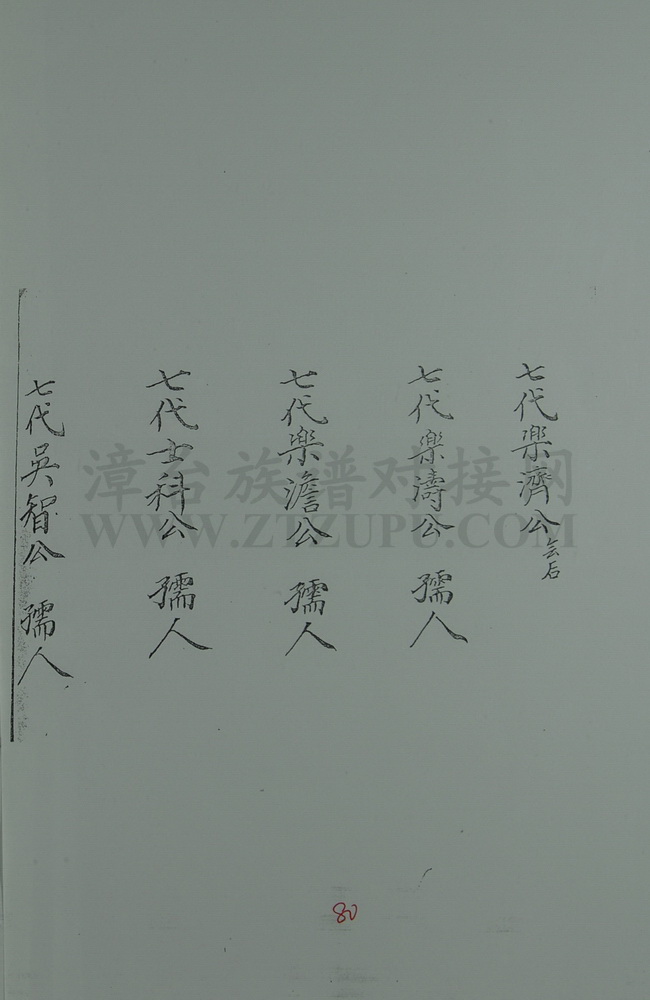 七代樂濟公 会后
七代樂濤公 孺人
七代樂澹公 孺人
七代士科公 孺人
七代吳智公 孺人
漳台族谱对接网
WWW.ZTZUPU.COM
80